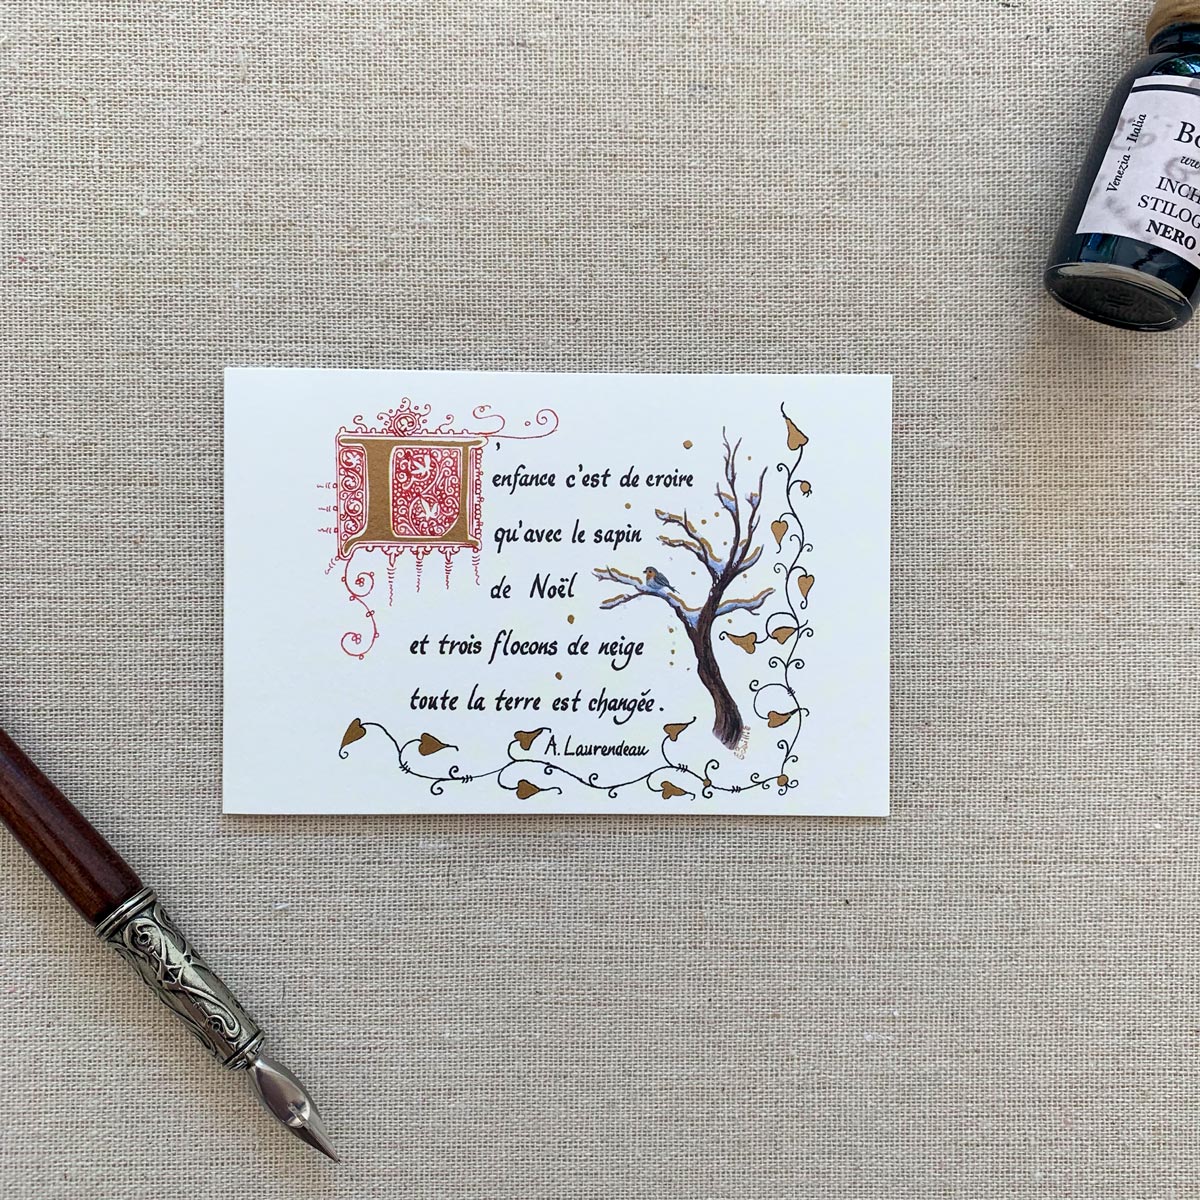 L'enfance c'est de croire
qu'avec le sapin
de Noël
et trois flocons de neige
toute la terre est changée.
A. Laurendeau
Venezia - Italia
NERO